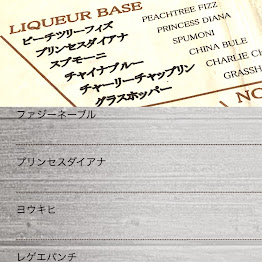 LIQUEUR BASE
ピーチツリーフィズ PEACHTREE FIZZ
プリンセスダイアナ PRINCESS DIANA
スプモーニ SPUMONI
チャイナブルー CHINA BULE
チャーリーチャップリン CHARLIE C
グラスホッパー GRASSH
NO
ファジーネーブル
プリンセスダイアナ
ヨウキヒ
レゲエパンチ